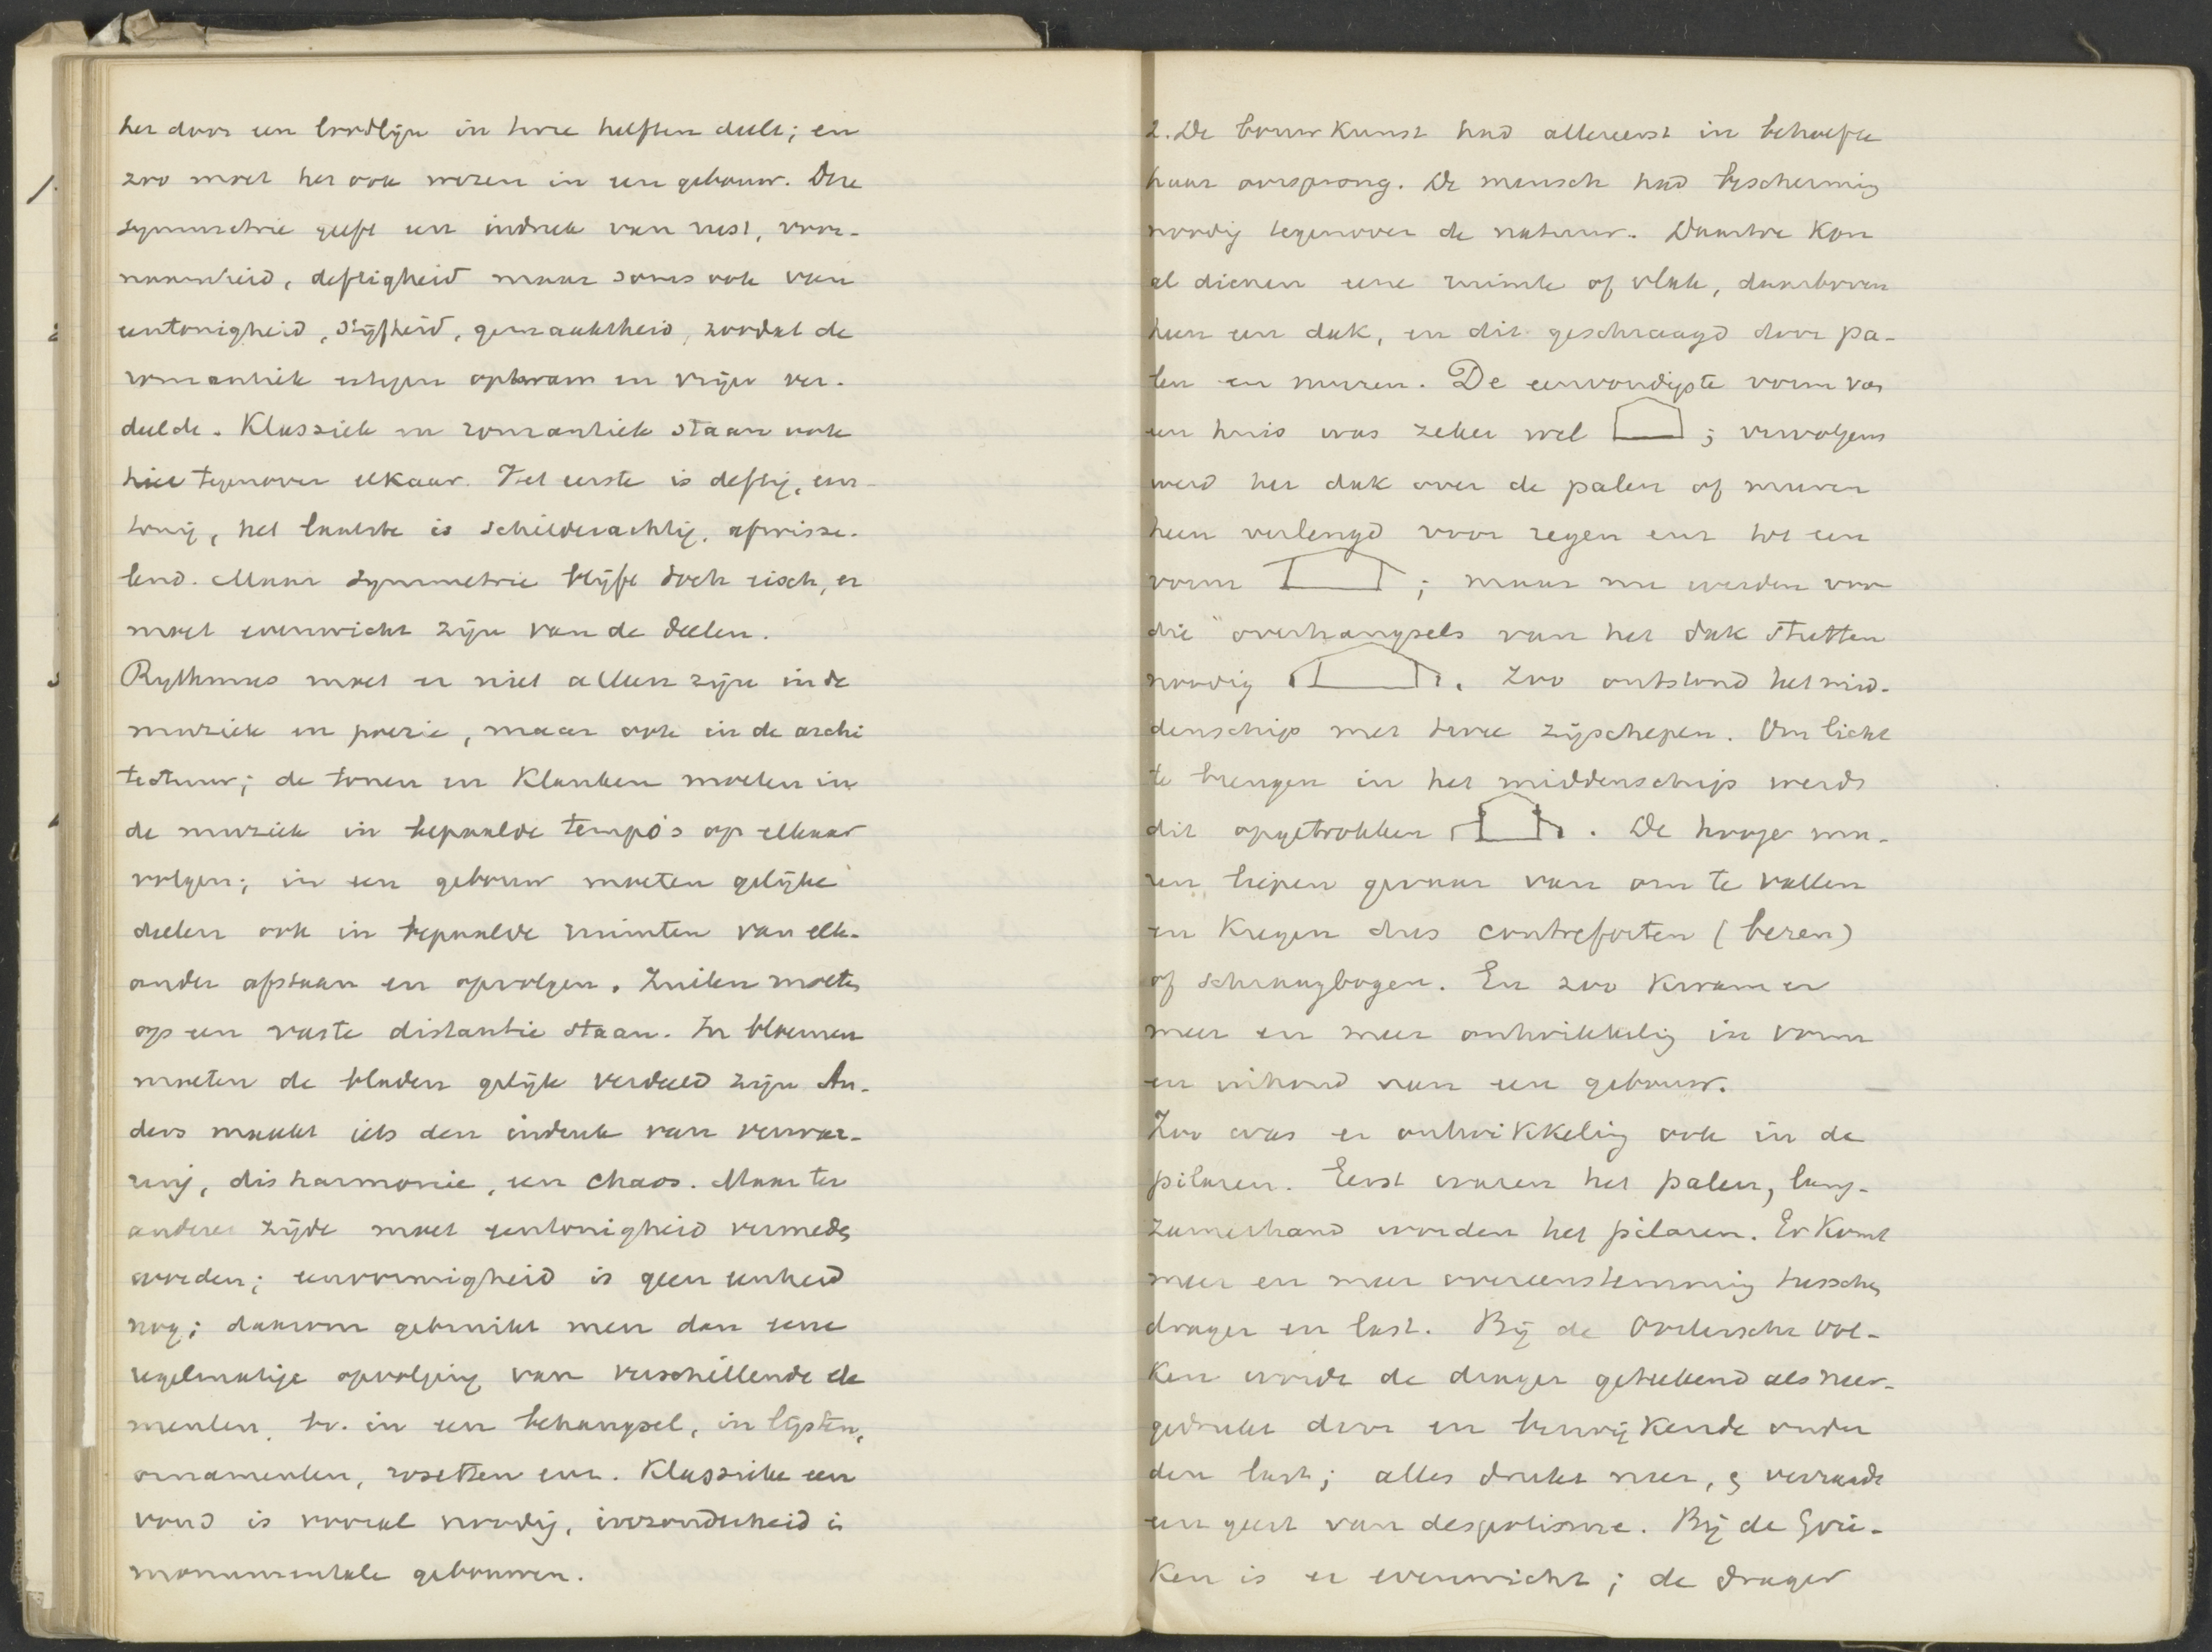 het door een loodlijn in twee helften deelt; en
zoo moet het ook wezen in een gebouw. Deze
symmetrie geeft een indruk van rust, voor-
naamheid, deftigheid maar soms ook van
eentonigheid, stijfheid, gemaaktheid, zoodat de
romantiek ertegen opkwam en vrijer ver-
deelde. Klassiek en romantiek staan ook
hier tegenover elkaar. Het eerste is deftig, een-
tonig, het laatste is schilderachtig, afwisse-
lend. Maar symmetrie blijft toch eisch, er
moet evenwicht zijn van de deelen.
Rythmus moet er niet alleen zijn in de
muziek en poezie, maar ook in de archi
tectuur; de tonen en klanken moeten in
de muziek in bepaalde tempo's op elkaar
volgen; in een gebouw moeten gelijke
deelen ook in bepaalde ruimten van elk-
ander afstaan en opvolgen. Zuilen moeten
op een vaste distantie staan. In bloemen
moeten de bladen gelijk verdeeld zijn An-
ders maakt iets den indruk van verwar-
ring, disharmonie, een chaos. Maar ter
anderer zijde moet eentonigheid vermeden
worden; eenvormigheid is geen eenheid
nog; daarom gebruikt men dan eene
regelmatige opvolging van verschillende ele
menten, bv. in een behangsel, in lijsten,
ornamenten, rosetten enz. Klassieke een
voud is vooral noodig, inzonderheid in
monumentale gebouwen.
2. De bouwkunst had allereerst in behoefte
haar oorsprong. De mensch had bescherming
noodig tegenover de natuur. Daartoe kon
al dienen eene ruimte of vlak, daarboven
heen een dak, en dit geschraagd door pa-
len en muren. De eenvoudigste vorm van
een huis was zeker wel ; vervolgens
werd het dak over de palen of muren
heen verlengd voor regen enz tot een
vorm ; maar nu werden voor
die overhangsels van het dak stutten
noodig . Zoo ontstond het mid-
denschip met twee zijschepen. Om licht
te brengen in het middenschip werd
dit opgetrokken . De hooge mu-
ren liepen gevaar van om te vallen
en kregen dus contreforten (beren)
of schraagbogen. En zoo kwam er
meer en meer ontwikkeling in vorm
en inhoud van een gebouw.
Zoo was er ontwikkeling ook in de
pilaren. Eerst waren het palen, lang-
zamerhand worden het pilaren. Er komt
meer en meer overeenstemming tusschen
drager en last. Bij de Oostersche vol-
ken wordt de drager geteekend als neer-
gedrukt door en bezwijkende onder
den last; alles drukt neer, & verraadt
een geest van despotisme. Bij de Grie-
ken is er evenwicht; de drager